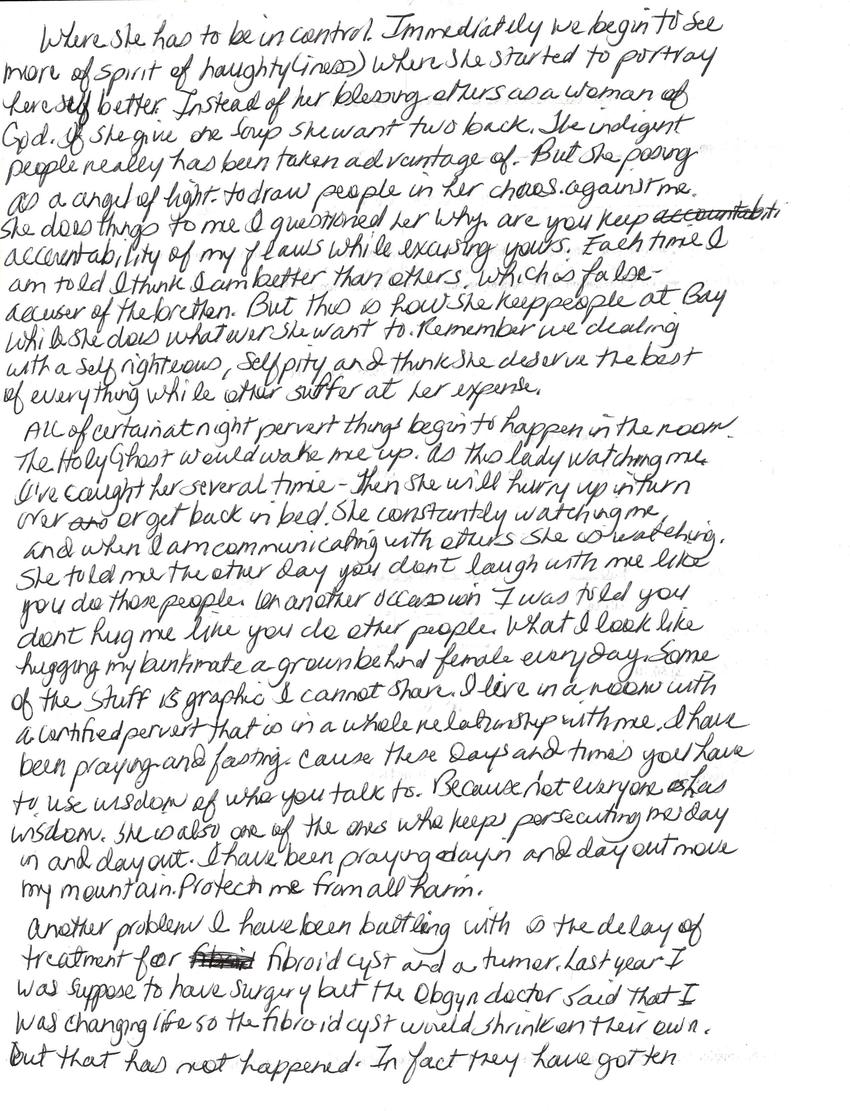 Where she has to be in control. Immediately we begin to see
more of spirit of haughty(iness) where she started to portray
hereself better. Instead of her blessing others as a woman of
God. If she give one soup she want two back. The indigent
people really has been taken advantage of. But she posing
as a angel of light. to draw people in her chaos. against me.
She does things to me I questioned her why. are you keep accountabiti
accountability of my flaws while excusing yours. Each time I
am told I think I am better than others, which is false-
accuser of the brethen. But this is how she keep people at Bay
while she does whatever she want to. Remember we dealing
with a self righteous, self pity and think she deserve the best
of everything while other suffer at her expense.
All of certain at night pervert things begin to happen in the room.
The Holy Ghost would wake me up. as this lady watching me.
I've caught her several time - Then she will hurry up in turn
over and or get back in bed. She constantly watching me,
and when I am communicating with others she is watching.
She told me the other day you dont laugh with me like
you do those people. On another occassion I was told you
dont hug me like you do other people. What I look like
hugging my bunkmate a grown behind female everyday. Some
of the stuff is graphic I cannot share. I live in a room with
a certified pervert that is in a whole relationship with me. I have
been praying and fasting. Cause these days and times you have
to use wisdom of who you talk to. Because not everyone has
wisdom. She is also one of the ones who keeps persecuting me day
in and day out. I have been praying day in and day out move
my mountain. Protect me from all harm.
Another problem I have been battling with is the delay of
treatment for fibroid fibroid cyst and a tumor. Last year I
was suppose to have surgery but the Obgyn doctor said that I
was changing life so the fibroid cyst would shrink on their own.
but that has not happened. In fact they have gotten